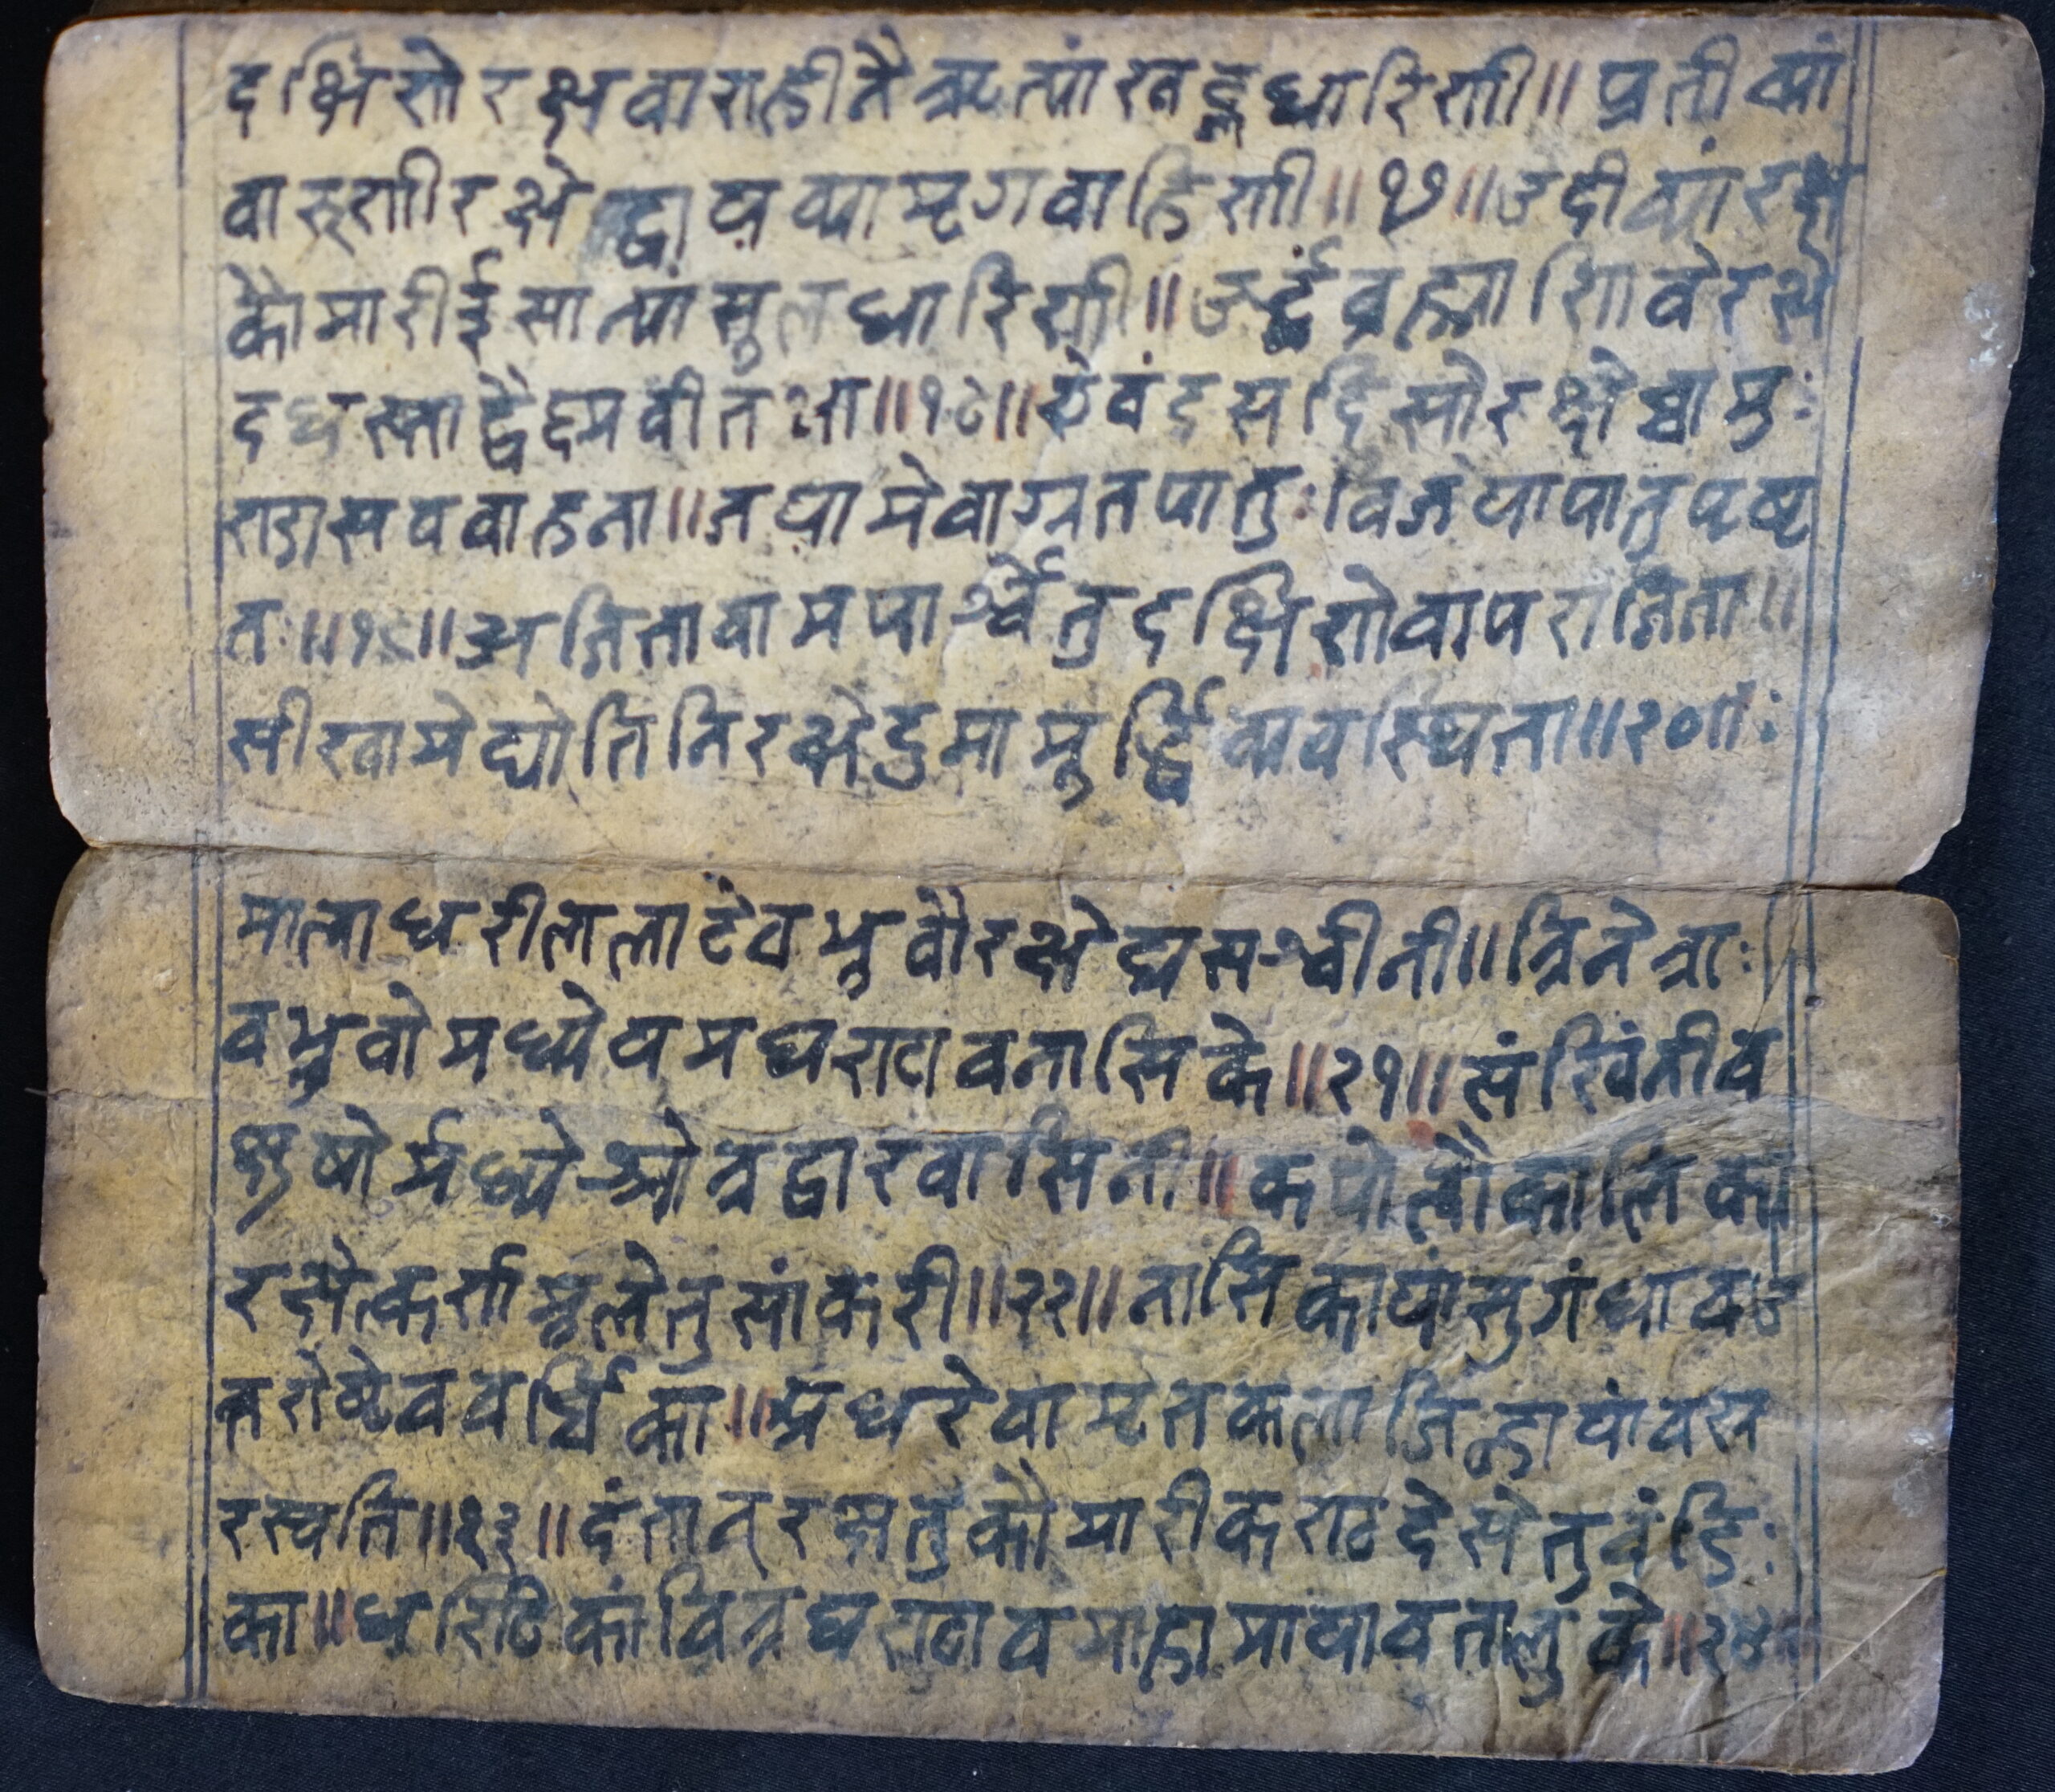 दक्षिणे रक्ष वाराही नैऋत्यां खड्गधारिणी॥ प्रतीच्यां
वारूणी रक्षेद्वायव्या मृगवाहिणी॥१७॥उदीच्यां रक्ष
कौमारी ईसान्यां सुलधारिणी॥उर्द्ध्वं व्रह्माणि वे रक्षे
दधस्ताद्वैष्नवी तथा॥१८॥येवं दस दिसो रक्षे च्चामुः
ण्डा सववाहना॥जया मे वाग्रत पातुः विजया पातु पृष्ट
तः॥१९॥अजिता वामपार्श्वे तु दक्षिणे वापराजिता॥
सीखा मे द्योतिनि रक्षेदुमा मूर्द्धि व्यवस्थिता॥२०॥ः
मालाधरी ललाटे च भ्रुवौ रक्षेद्यसश्वीनी॥त्रिनेत्राः
च भ्रुवो मध्ये यमघण्टा च नासिके॥२१॥संखिनी च
क्षुषोर्मध्ये श्रोत्रद्वारवासिनी॥कपोलौ कालिका
रक्षेत्कर्णमूले तु सांकरी॥२२॥नासिकायां सुगंधा च उ
त्तरोष्टे च चर्चिका॥अधरे चामृतकला जिह्वायां च स
रस्वति॥२३॥दंतान् रक्षतु कौमारी कण्ठदेसे तु चंडिः
का॥घण्टिकां चित्रघण्टा च माहामाया च तालुके॥२४